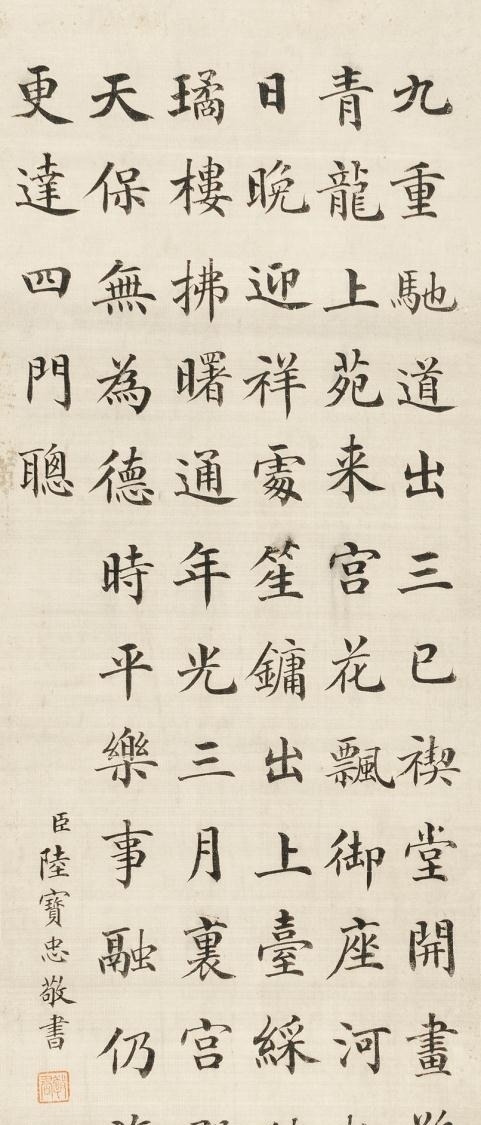 九重馳道出三巳禊堂開畫
青龍上苑来宮花飄御座河
日晩迎祥處笙鏞出上臺綵
璚樓拂曙通年光三月裏宮
天保無為德時平樂事融仍
更達四門聰
臣陸寶忠敬書